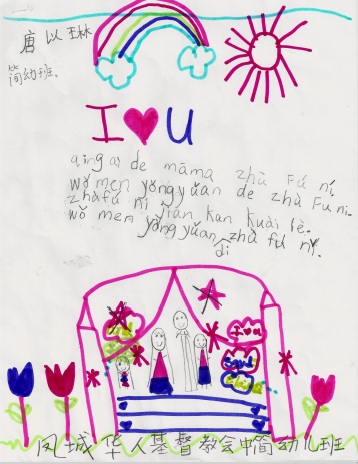 唐以琳
简幼班.
I ♥ U
qing ai de māma zhù Fú nǐ
wǒ men yǒngyuǎn de zhù Fu ni.
zhùfú nǐ jiàn kan kuài lè.
wǒ men yǒng yuǎn zhù fú nǐ.
di
凤城华人基督教会中简幼儿班